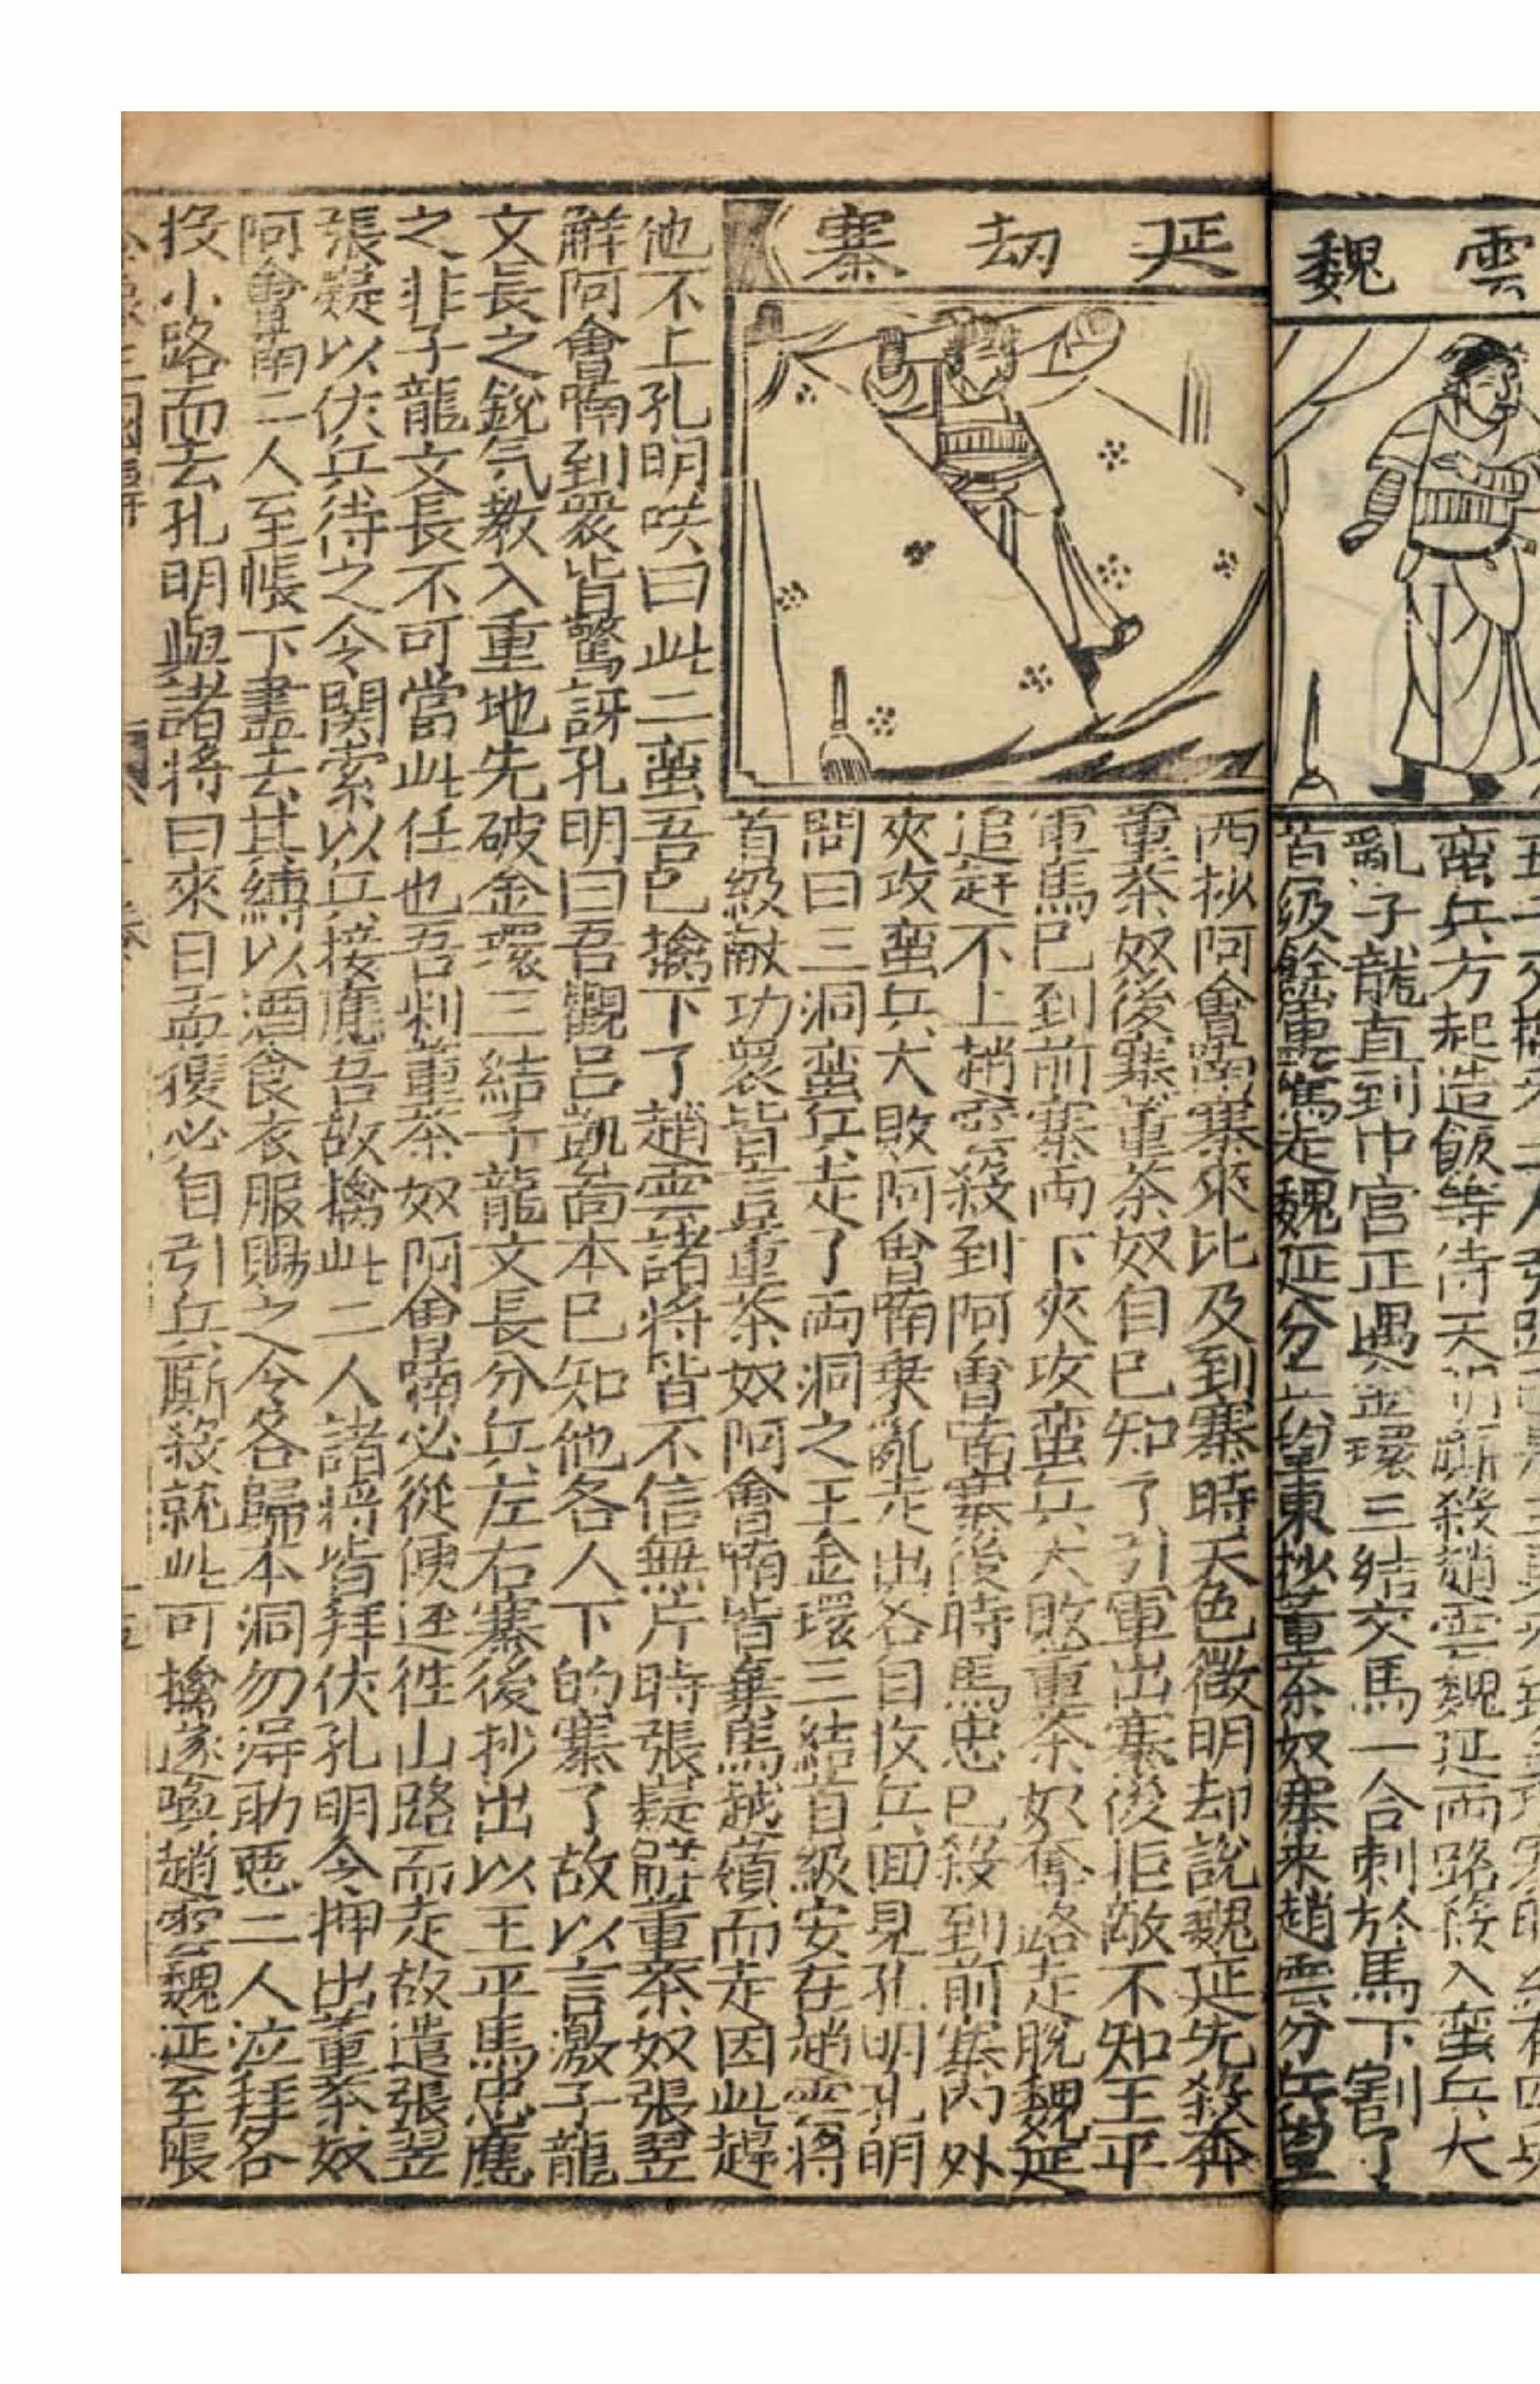 雲魏
蛮兵方起造飯等待天明廝殺趙雲魏延两路殺入蛮兵大
亂子龍直到中宫正遇金環三結交馬一合刺於馬下割了
首級餘軍驚走魏延分兵望東抄董茶奴寨来趙雲分兵望
延劫寨
西抄阿會喃寨來比及到寨時天色微明却説魏延先殺奔
董茶奴後寨董茶奴自已知了引軍出寨後拒敵不知王平
軍馬已到前寨两下夾攻蛮兵大敗董茶奴奪路走脱魏延
追赶不上趙雲殺到阿會喃寨後時馬忠已殺到前寨内外
夾攻蛮兵大敗阿會喃乗亂走出各自收兵囬見孔明孔明
問曰三洞蛮兵走了两洞之王金環三結首級安在趙雲将
首級献功衆皆言董茶奴阿會喃皆棄馬越嶺而走因此趕
他不上孔明咲曰此二蛮吾已擒下了趙雲諸将皆不信無片時張嶷觧董茶奴張翌
觧阿會喃到衆皆驚訝孔明曰吾觀吕凱畵本已知他各人下的寨了故以言激子龍
文長之鋭気教入重地先破金環三結子龍文長分兵左右寨後抄出以王平馬忠應
之非子龍文長不可當此任也吾料董茶奴阿會喃必從便逕徃山路而走故遣張翌
張嶷以伏兵待之令関索以兵接應吾故擒此二人諸将皆拜伏孔明令押出董茶奴
阿會喃二人至帳下盡去其縛以酒食衣服賜之令各歸本洞勿淂助惡二人泣拜各
投小路而去孔明與諸将曰來日孟獲必自引兵厮殺就此可擒遂喚趙雲魏延至帳